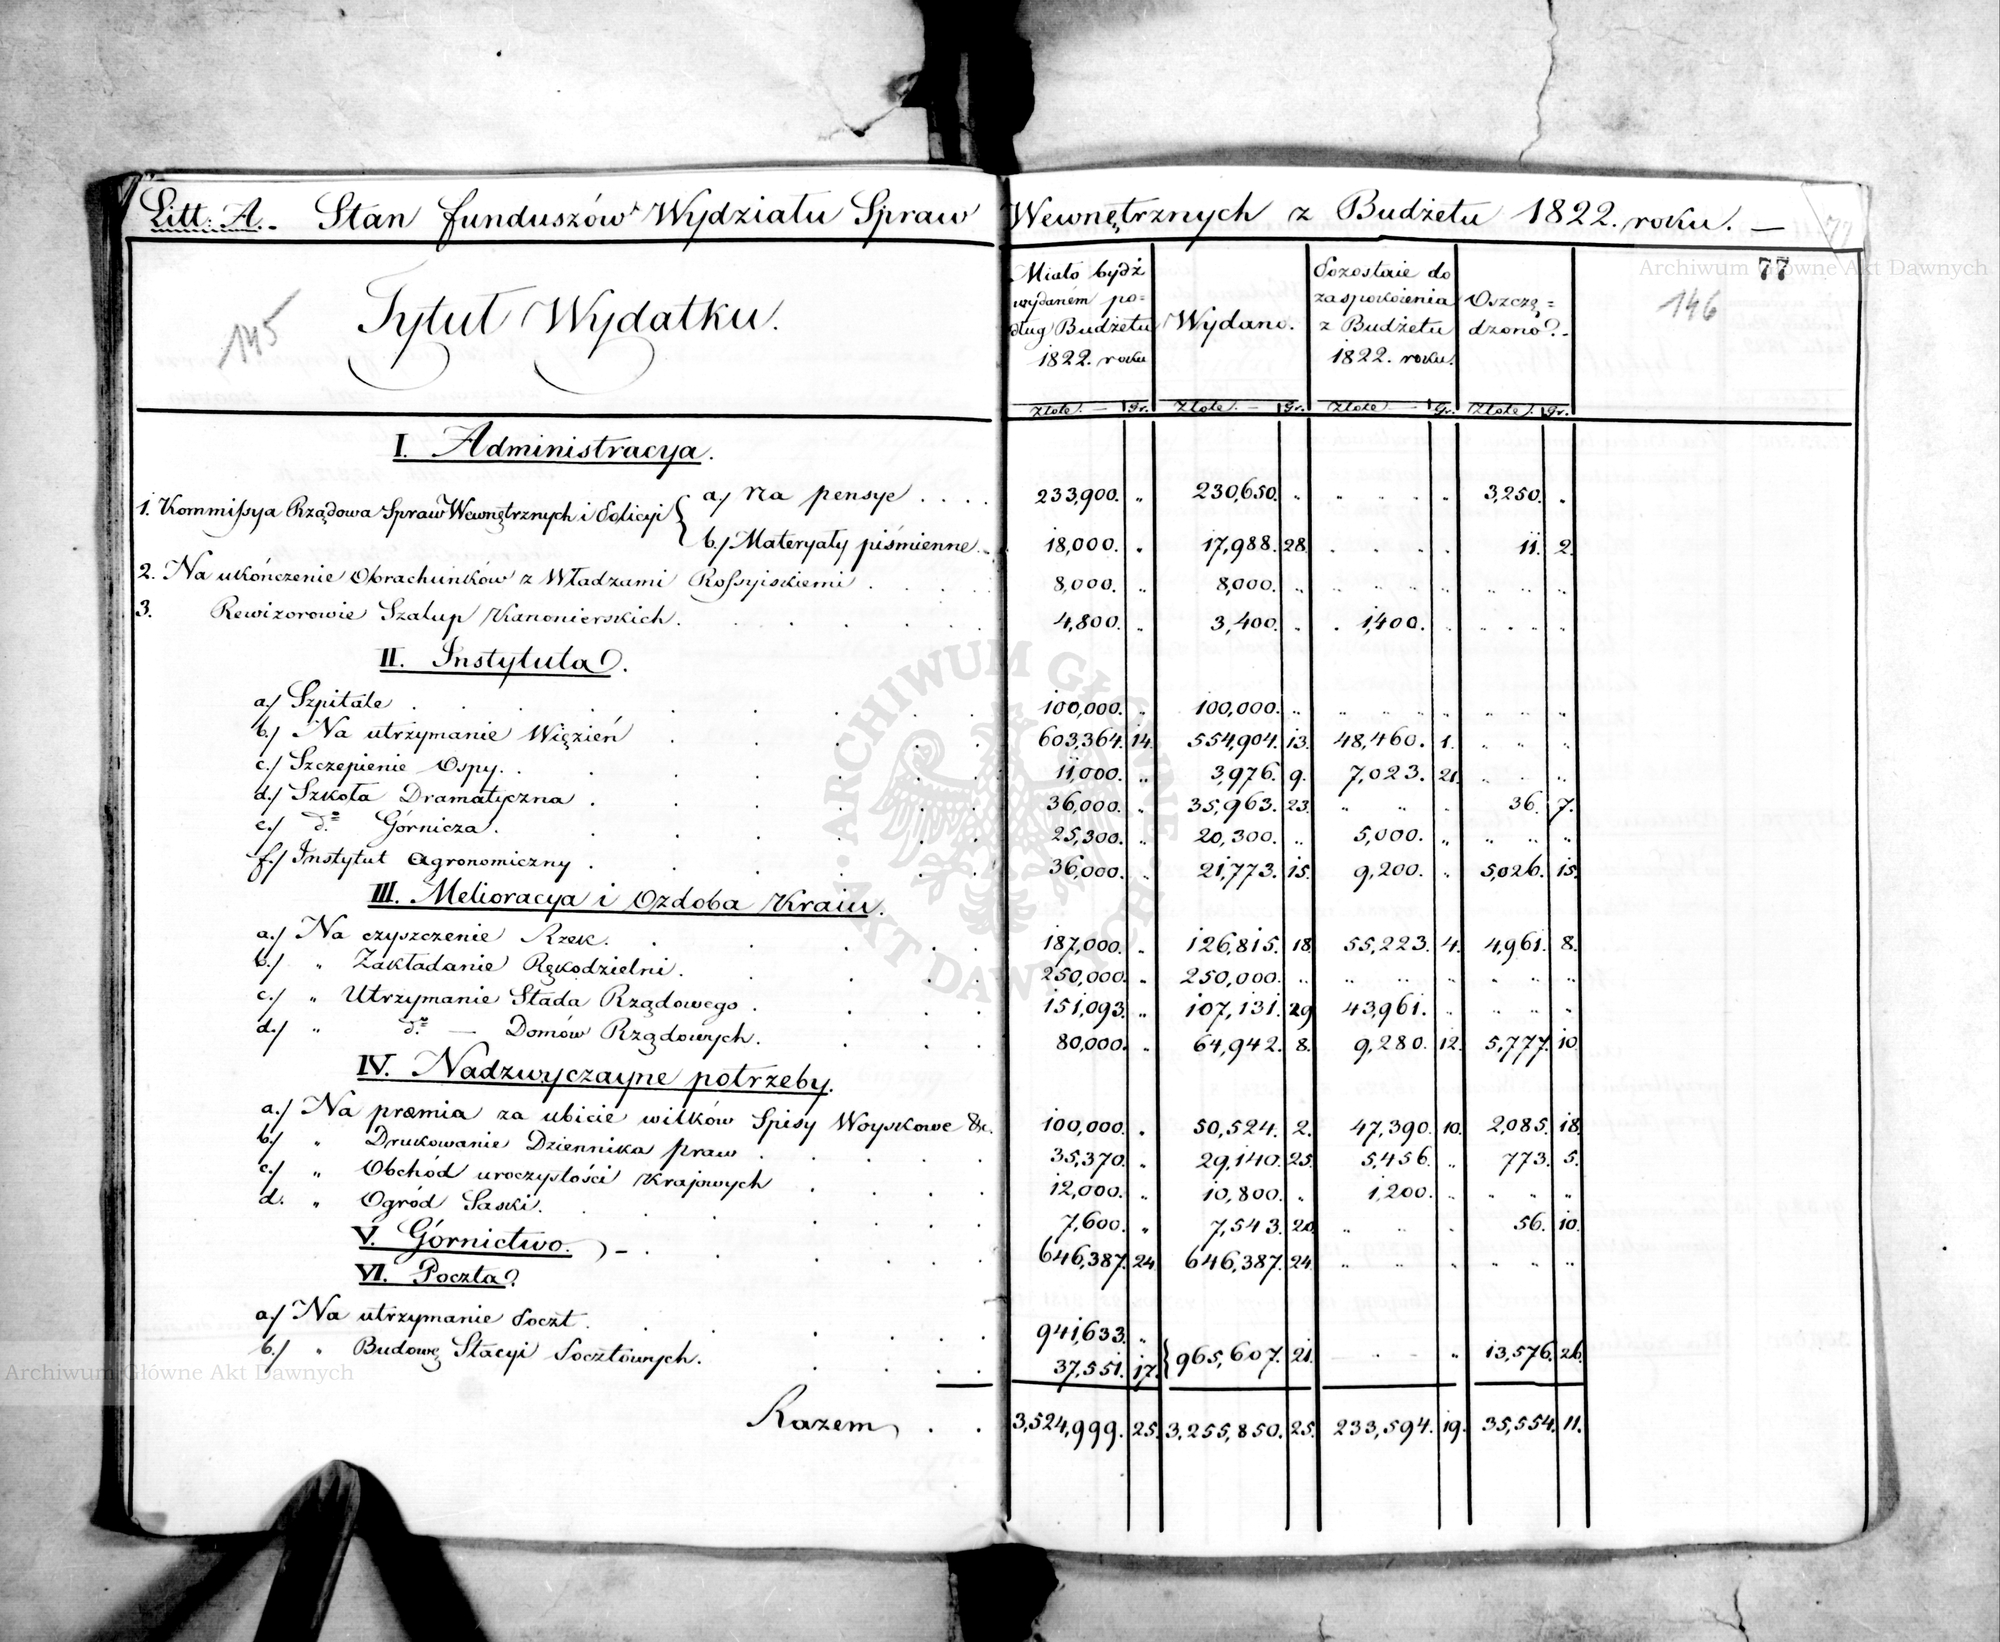 Litt: A. Stan funduszów Wydziału Spraw Wewnętrznych z Budżetu 1822. roku. —
77
Archiwum Główne Akt Dawnych
77
145
146
Tytuł Wydatku.
Miało bydź wydaném po= dług Budżetu 1822. roku
Wydano.
Pozostaie do zaspokoienia z Budżetu 1822. roku.
Oszczę= dzono.
Złote. — Gr. Złote. — Gr. Złote — Gr. Złote. Gr.
I. Administracya.
1. Kommissya Rządowa Spraw Wewnętrznych i Policyi { a./ Na pensye . . . . 233,900. „ 230,650. „ „ „ „ „ 3,250. „
b./ Materyały piśmienne . . 18,000. „ 17,988. 28. . . . . 11. 2.
2. Na ukończenie Obrachunków z Władzami Rossyiskiemi . . . . 8,000. „ 8,000. „ „ „ „ „ „ „ „
3. Rewizorowie Szalup Kanonierskich . . . . . . 4,800. „ 3,400. „ . 1,400. „ „ „ „ „
II. Instytuta.
a./ Szpitale . . . . . . . . 100,000. „ 100,000. „ „ „ „ „ „ „ „
b./ Na utrzymanie Więzień . . . . . 603,364. 14. 554,904. 13. 48,460. 1. „ „ „
c./ Szczepienie Ospy . . . . . . . 11,000. „ 3,976. 9. 7,023. 21. „ „ „
d./ Szkoła Dramatyczna . . . . . . 36,000. „ 35,963. 23. „ „ „ 36. 7.
e./ do Górnicza . . . . . . 25,300. „ 20,300. „ 5,000. „ „ „ „
f./ Instytut agronomiczny . . . . . . 36,000. „ 21,773. 15. 9,200. „ 5,026. 15.
III. Melioracya i Ozdoba Kraiu.
a./ Na czyszczenie Rzek . . . . . 187,000. „ 126,815. 18. 55,223. 4. 4,961. 8.
b./ „ Zakładanie Rękodzielni . . . . . 250,000. „ 250,000. „ „ „ „ „ „ „
c./ „ Utrzymanie Stada Rządowego . . . . 151,093. „ 107,131. 29 43,961. „ „ „ „
d./ „ do — Domów Rządowych . . . . 80,000. „ 64,942. 8. 9,280. 12. 5,777. 10.
IV. Nadzwyczayne potrzeby.
a./ Na præmia za ubicie wilków Spisy Woyskowe &c. 100,000. „ 50,524. 2. 47,390. 10. 2,085. 18.
b./ „ Drukowanie Dziennika praw . . . . 35,370. „ 29,140. 25. 5,456. „ 773. 5.
c./ „ Obchód uroczystości Krajowych . . . . 12,000. „ 10,800. „ 1,200. „ „ „ „
d. „ Ogród Saski . . . . . . 7,600. „ 7,543. 20. „ „ „ 56. 10.
V. Górnictwo. — . . . . . 646,387. 24. 646,387. 24. „ „ „ „ „ „
VI. Poczta
a./ Na utrzymanie Poczt . . . . . . 941,633. „
b./ „ Budowę Stacyi Pocztowych . . . . 37,551. 17. } 965,607. 21. — „ - „ 13,576. 26.
Razem . . 3,524,999. 25. 3,255,850. 25. 233,594. 19. 35,554. 11.
ARCHIWUM GŁÓWNE AKT DAWNYCH
Archiwum Główne Akt Dawnych